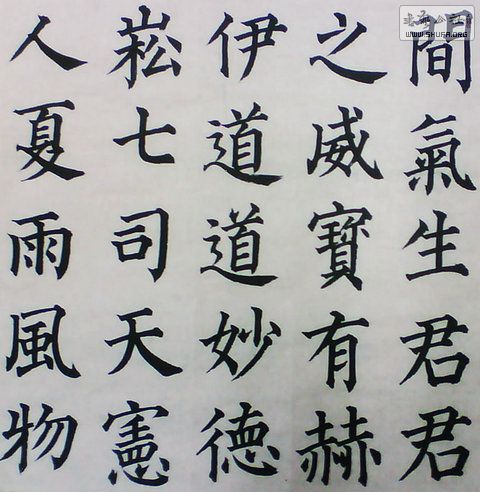 間氣生君君
之威寶有赫
伊道道妙德
崧七司天憲
人夏雨風物
WWW.SHUFA.ORG